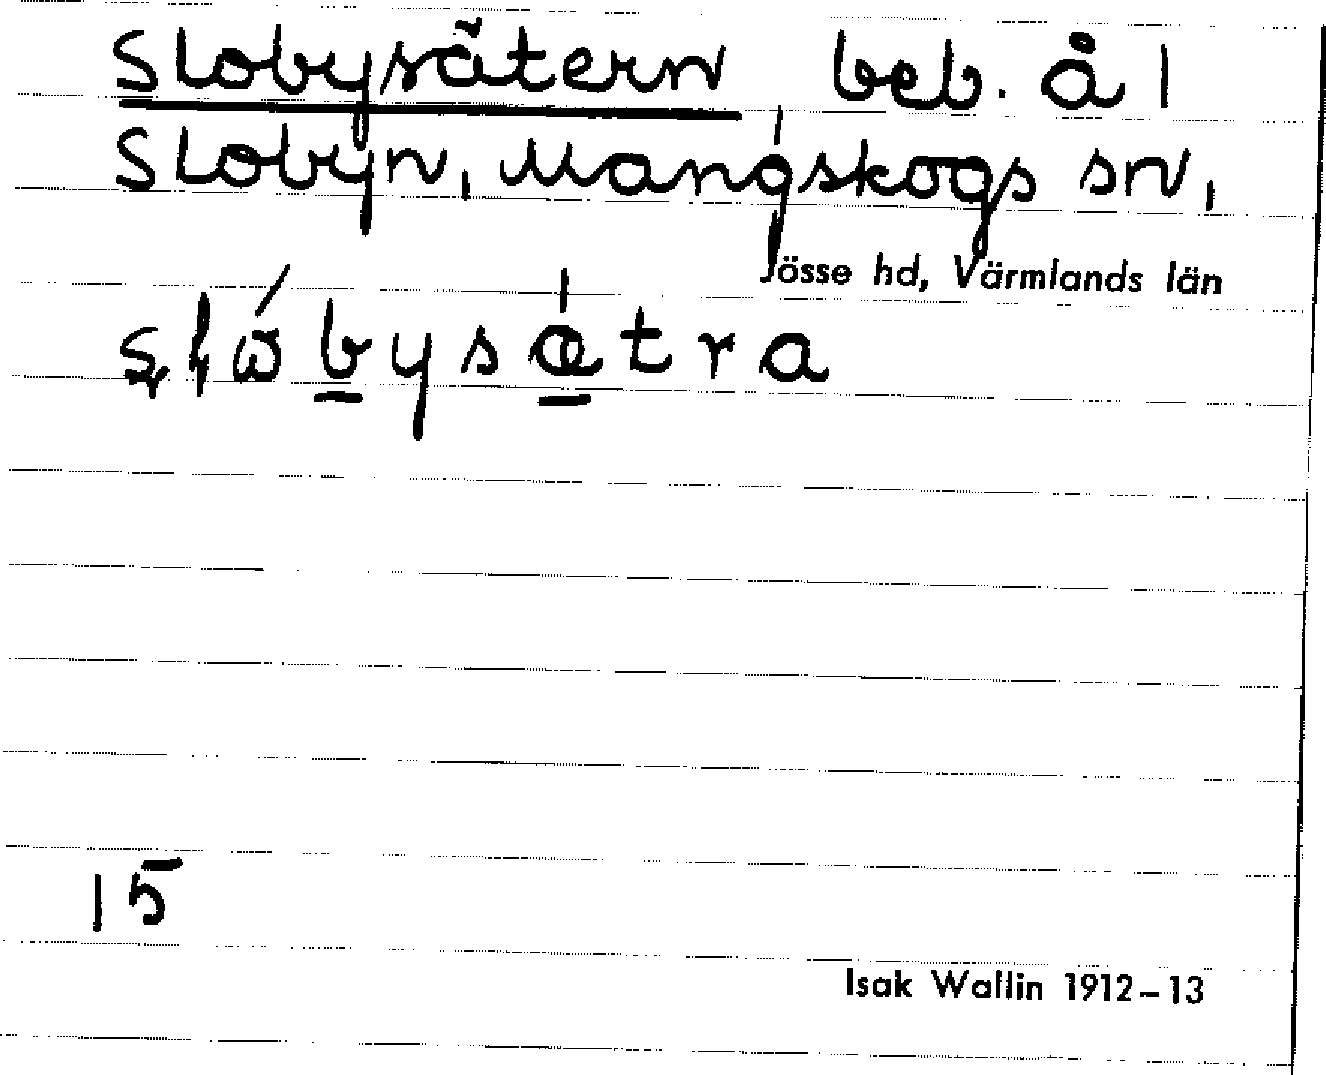 Slobysätern beb. å 1
Slobyn, Mangskogs sn,
Jösse hd, Värmlands län
bysætra
15
Isak Wallin 1912–13